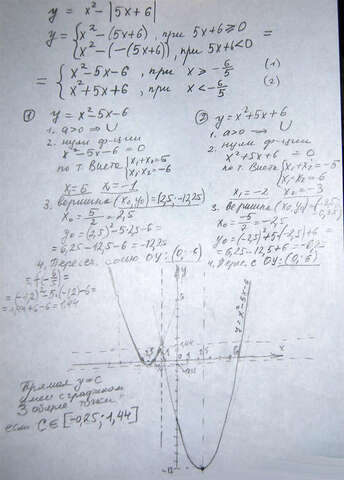 y = x² - |5x + 6|
y = { x² - (5x + 6), при 5x + 6 ≥ 0
x² - (-(5x + 6)), при 5x + 6 < 0 =
= { x² - 5x - 6, при x ≥ -6/5 (1)
x² + 5x + 6, при x < -6/5 (2)
① y = x² - 5x - 6
1. a > 0 ⇒ ∪
2. нули ф-ции
x² - 5x - 6 = 0
по т. Виета { x₁ + x₂ = 5
x₁ · x₂ = -6
x₁ = 6 x₂ = -1
3. вершина (x₀; y₀) = (2,5; -12,25)
x₀ = 5/2 = 2,5
y₀ = (2,5)² - 5·2,5 - 6 =
= 6,25 - 12,5 - 6 = -12,25
4. Пересеч. с осью OY: (0; -6)
= (-1,2)² - 5·(-1,2) - 6 =
= 1,44 + 6 - 6 = 1,44
② y = x² + 5x + 6
1. a > 0 ⇒ ∪
2. нули ф-ции
x² + 5x + 6 = 0
по т. Виета { x₁ + x₂ = -5
x₁ · x₂ = 6
x₁ = -2 x₂ = -3
3. вершина (x₀; y₀) = (-2,5; -0,25)
x₀ = -5/2 = -2,5
y₀ = (-2,5)² + 5·(-2,5) + 6
= 6,25 - 12,5 + 6 = -0,25
4. Перес. с OY: (0; 6)
y
x
y = x² - 5x - 6
Прямая y = c
имеет с графиком
3 общие точки,
если C ∈ [-0,25; 1,44]